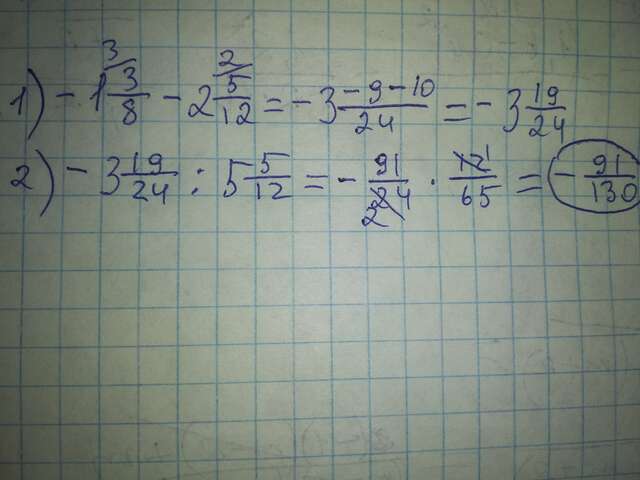 1) - 1 3/8 (3) - 2 5/12 (2) = - 3 (-9-10)/24 = - 3 19/24
2) - 3 19/24 : 5 5/12 = - 91/24 (2) · 12/65 (1) = - 91/130